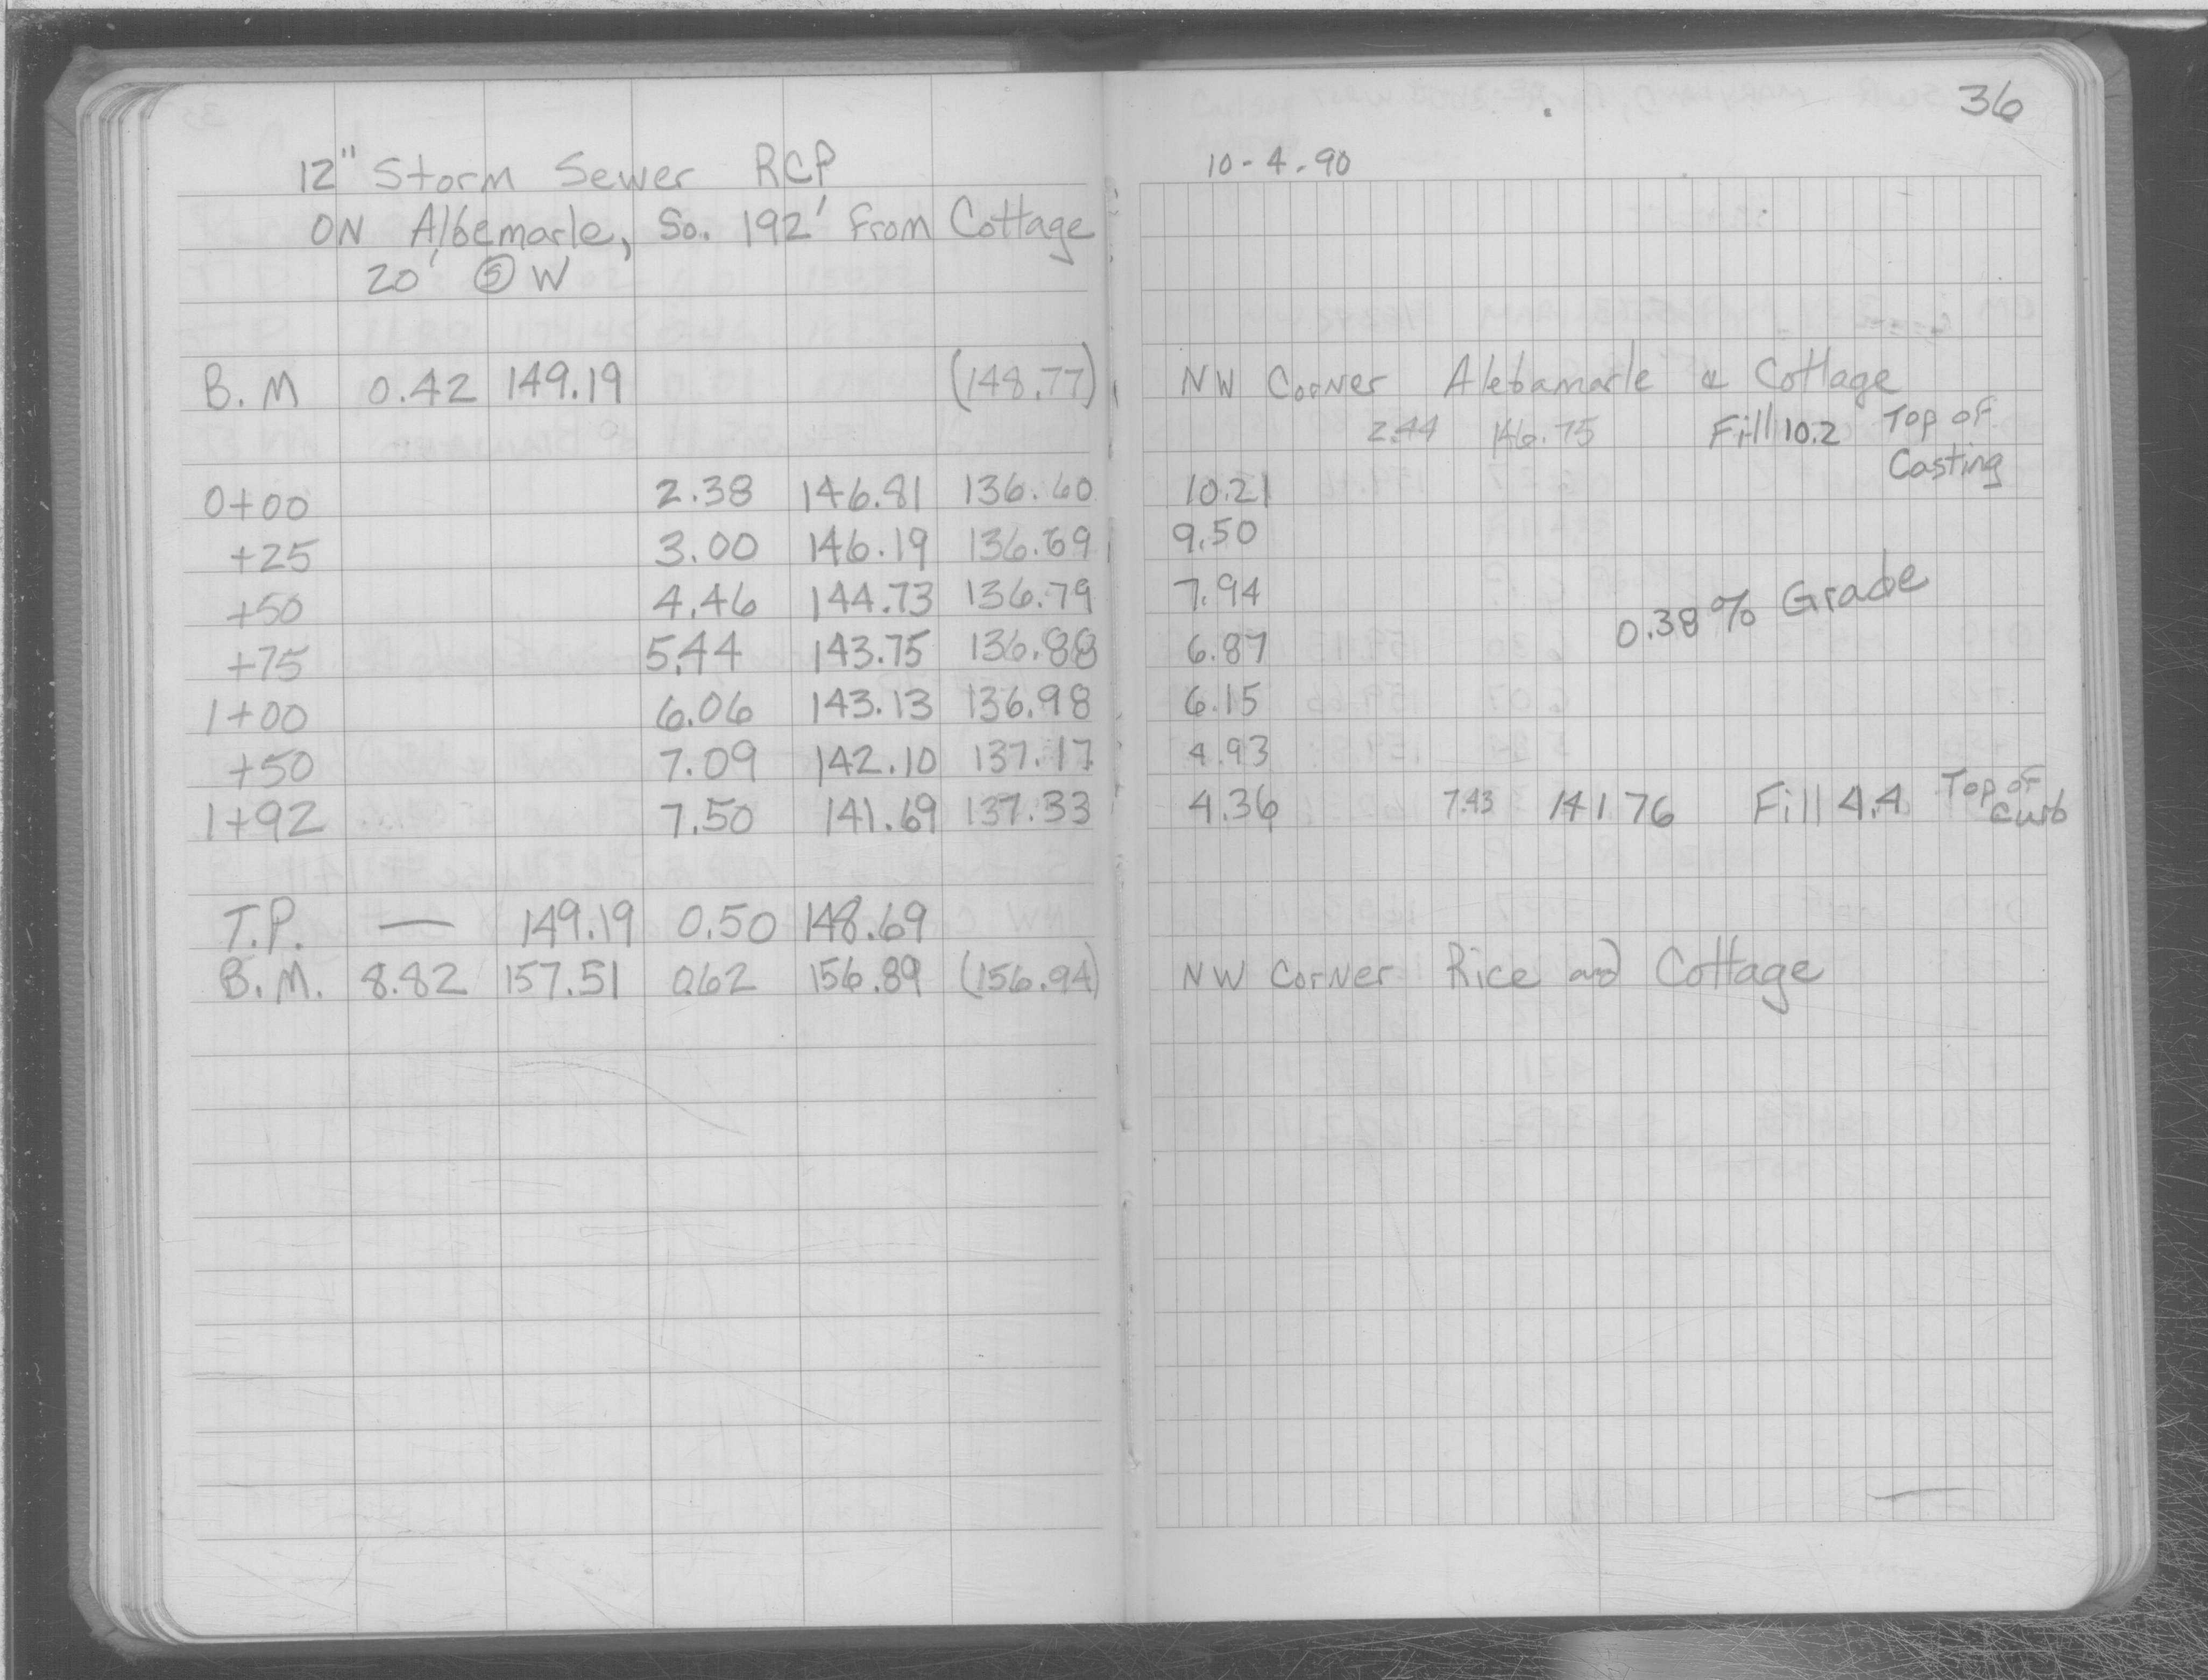 36
12" Storm Sewer RCP
10-4-90
ON Albemarle, So. 192' From Cottage
20' Ⓢ W
B.M 0.42 149.19 (148.77) NW Corner Alebamarle & Cottage
2.44 146.75 Fill 10.2 Top of
Casting
0+00 2.38 146.81 136.60 10.21
+25 3.00 146.19 136.69 9.50
+50 4.46 144.73 136.79 7.94
0.38% Grade
+75 5.44 143.75 136.88 6.87
1+00 6.06 143.13 136.98 6.15
+50 7.09 142.10 137.17 4.93
1+92 7.50 141.69 137.33 4.36 7.43 141 76 Fill 4.4 Top of
Curb
T.P. — 149.19 0.50 148.69
B.M. 8.82 157.51 062 156.89 (156.94) NW Corner Rice and Cottage